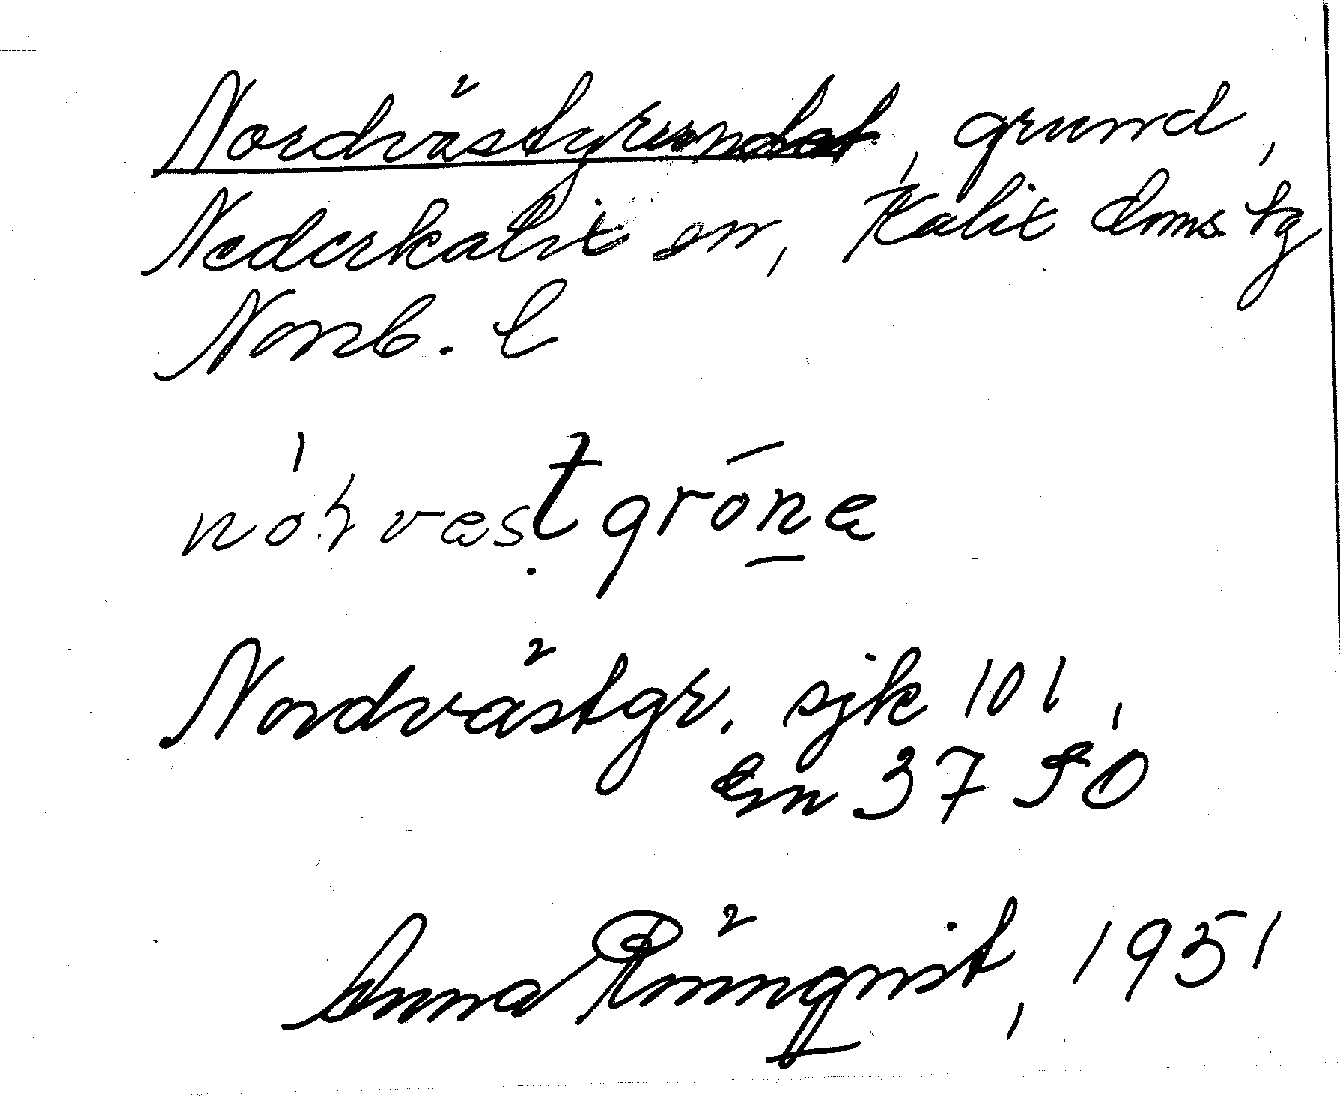 Nordvästgrundet, grund,
Nederkalix sn, Kalix doms tg
Norrb. l
Nordvästgr. sjk 101,
En 3790
Anna Rönnqvist, 1951